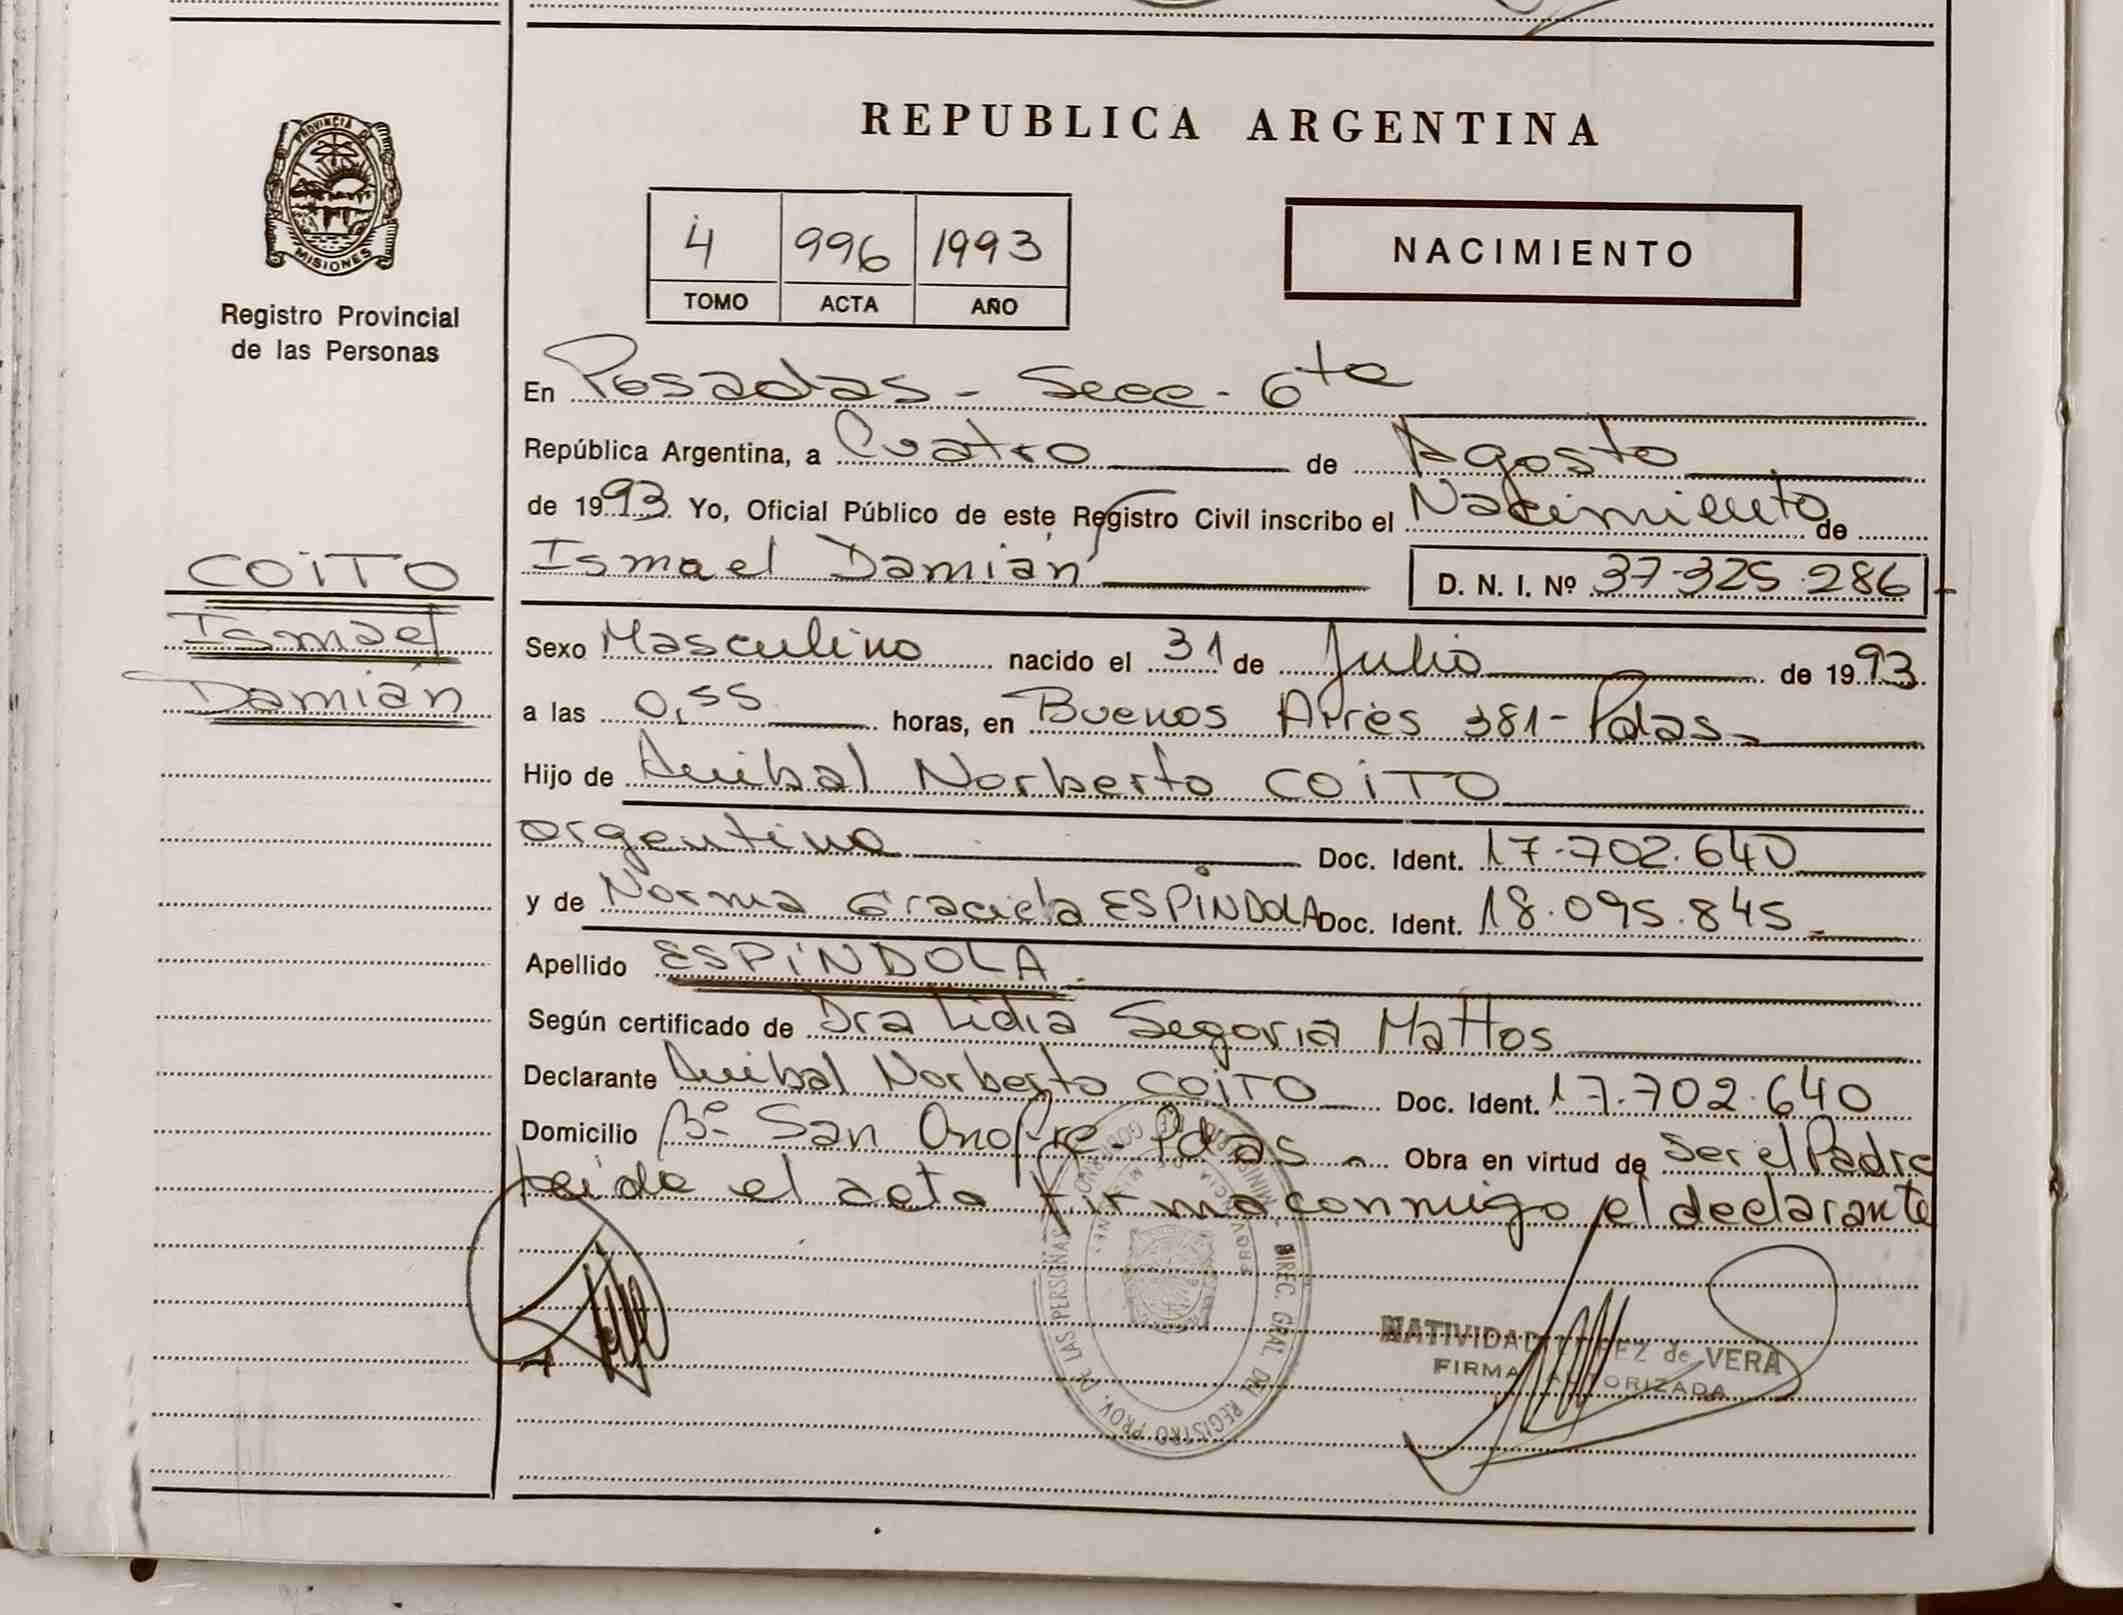 REPUBLICA ARGENTINA
PROVINCIA DE
MISIONES
Registro Provincial
de las Personas
4 996 1993
TOMO ACTA AÑO
NACIMIENTO
En Posadas - Secc - 6ta
República Argentina, a Cuatro de Agosto
de 1993 Yo, Oficial Público de este Registro Civil inscribo el Nacimiento de
Ismael Damián D. N. I. Nº 37.325.286
COITO
Ismael
Damián
Sexo Masculino nacido el 31 de Julio de 1993
a las 0,55 horas, en Buenos Aires 381 - Pdas
Hijo de Anibal Norberto COITO
argentino Doc. Ident. 17.702.640
y de Norma Graciela ESPINDOLA Doc. Ident. 18.095.845
Apellido ESPINDOLA
Según certificado de Dra Lidia Segovia Mattos
Declarante Anibal Norberto COITO Doc. Ident. 17.702.640
Domicilio Bº San Onofre - Pdas Obra en virtud de Ser el Padre
leida el acta firma conmigo el declarante
MINISTERIO DE GOBIERNO
PROVINCIA DE MISIONES
DIREC. GRAL. DEL REGISTRO PROV. DE LAS PERSONAS
NATIVIDAD de VERA
FIRMA AUTORIZADA